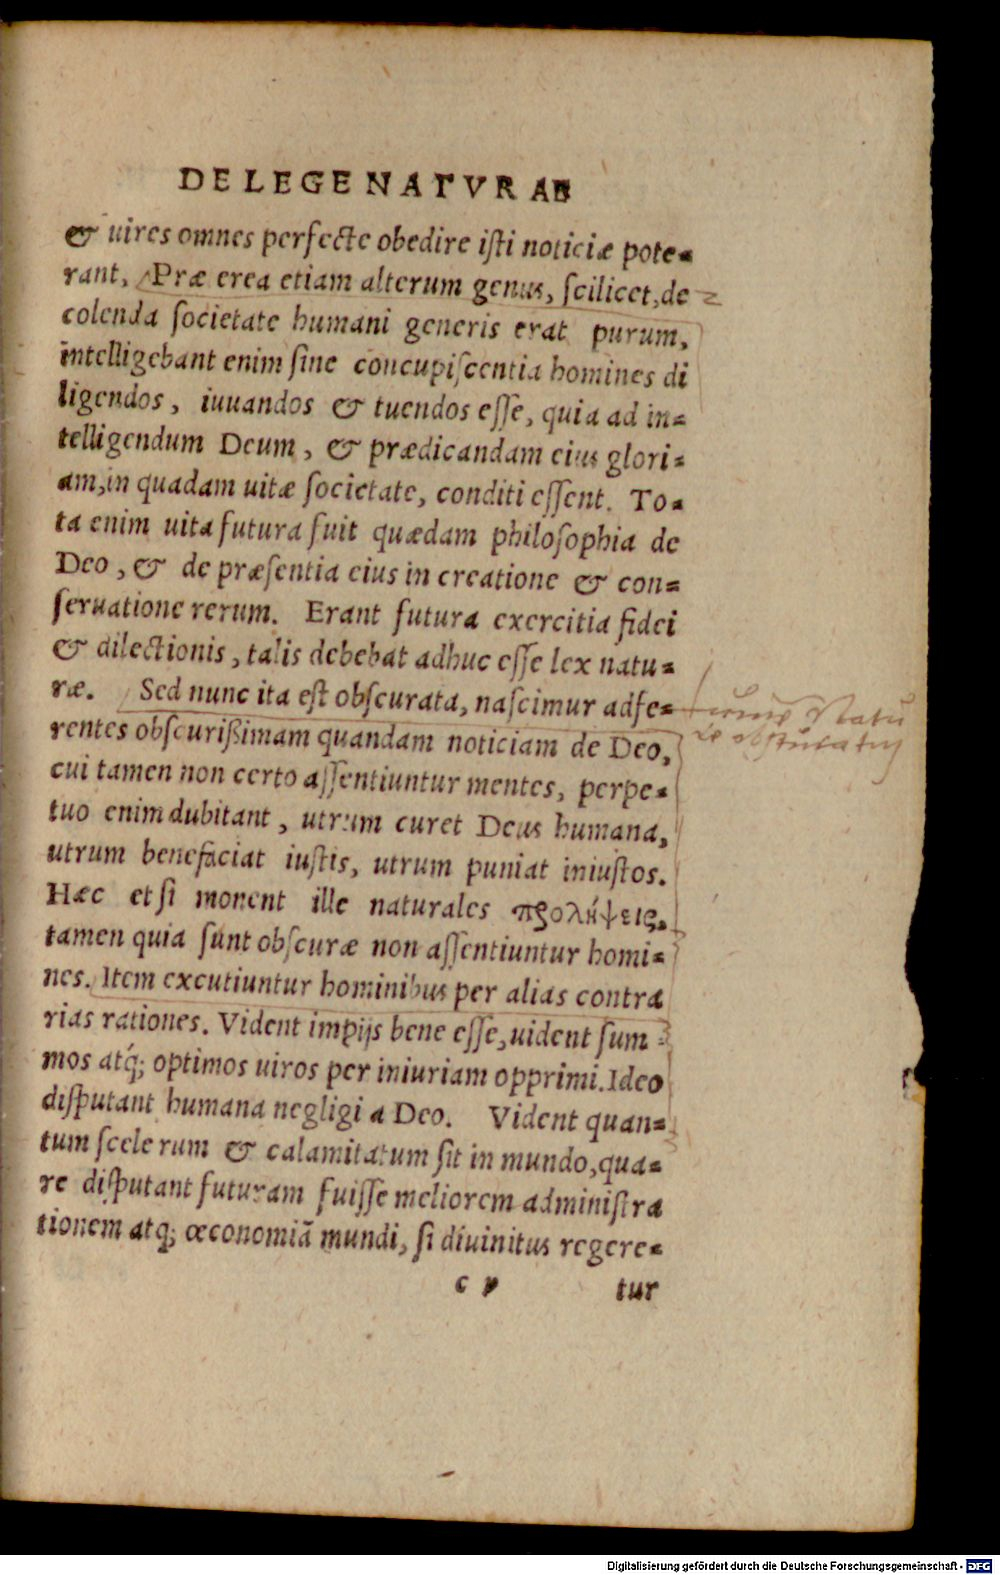 DE LEGE NATVRAE
& uires omnes perfecte obedire isti noticiæ pote=
rant, Præ erea etiam alterum genus, scilicet, de
colenda societate humani generis erat purum,
intelligebant enim sine concupiscentia homines di
ligendos, iuuandos & tuendos esse, quia ad in=
telligendum Deum, & prædicandam eius glori=
am, in quadam uitæ societate, conditi essent. To=
ta enim uita futura fuit quædam philosophia de
Deo, & de præsentia eius in creatione & con=
seruatione rerum. Erant futura exercitia fidei
& dilectionis, talis debebat adhuc esse lex natu=
ræ. Sed nunc ita est obscurata, nascimur adfe=
rentes obscurißimam quandam noticiam de Deo,
cui tamen non certo assentiuntur mentes, perpe=
tuo enim dubitant, utrum curet Deus humana,
utrum benefaciat iustis, utrum puniat iniustos.
Hæc etsi monent ille naturales προλήψεις,
tamen quia sunt obscuræ non assentiuntur homi=
nes. Item excutiuntur hominibus per alias contra
rias rationes. Vident impijs bene esse, uident sum
mos atq́; optimos uiros per iniuriam opprimi. Ideo
disputant humana negligi a Deo. Vident quan=
tum scele rum & calamitatum sit in mundo, qua=
re disputant futuram fuisse meliorem administra
tionem atq; œconomiã mundi, si diuinitus regere=
c v tur
2
Natu
Digitalisierung gefördert durch die Deutsche Forschungsgemeinschaft - DFG